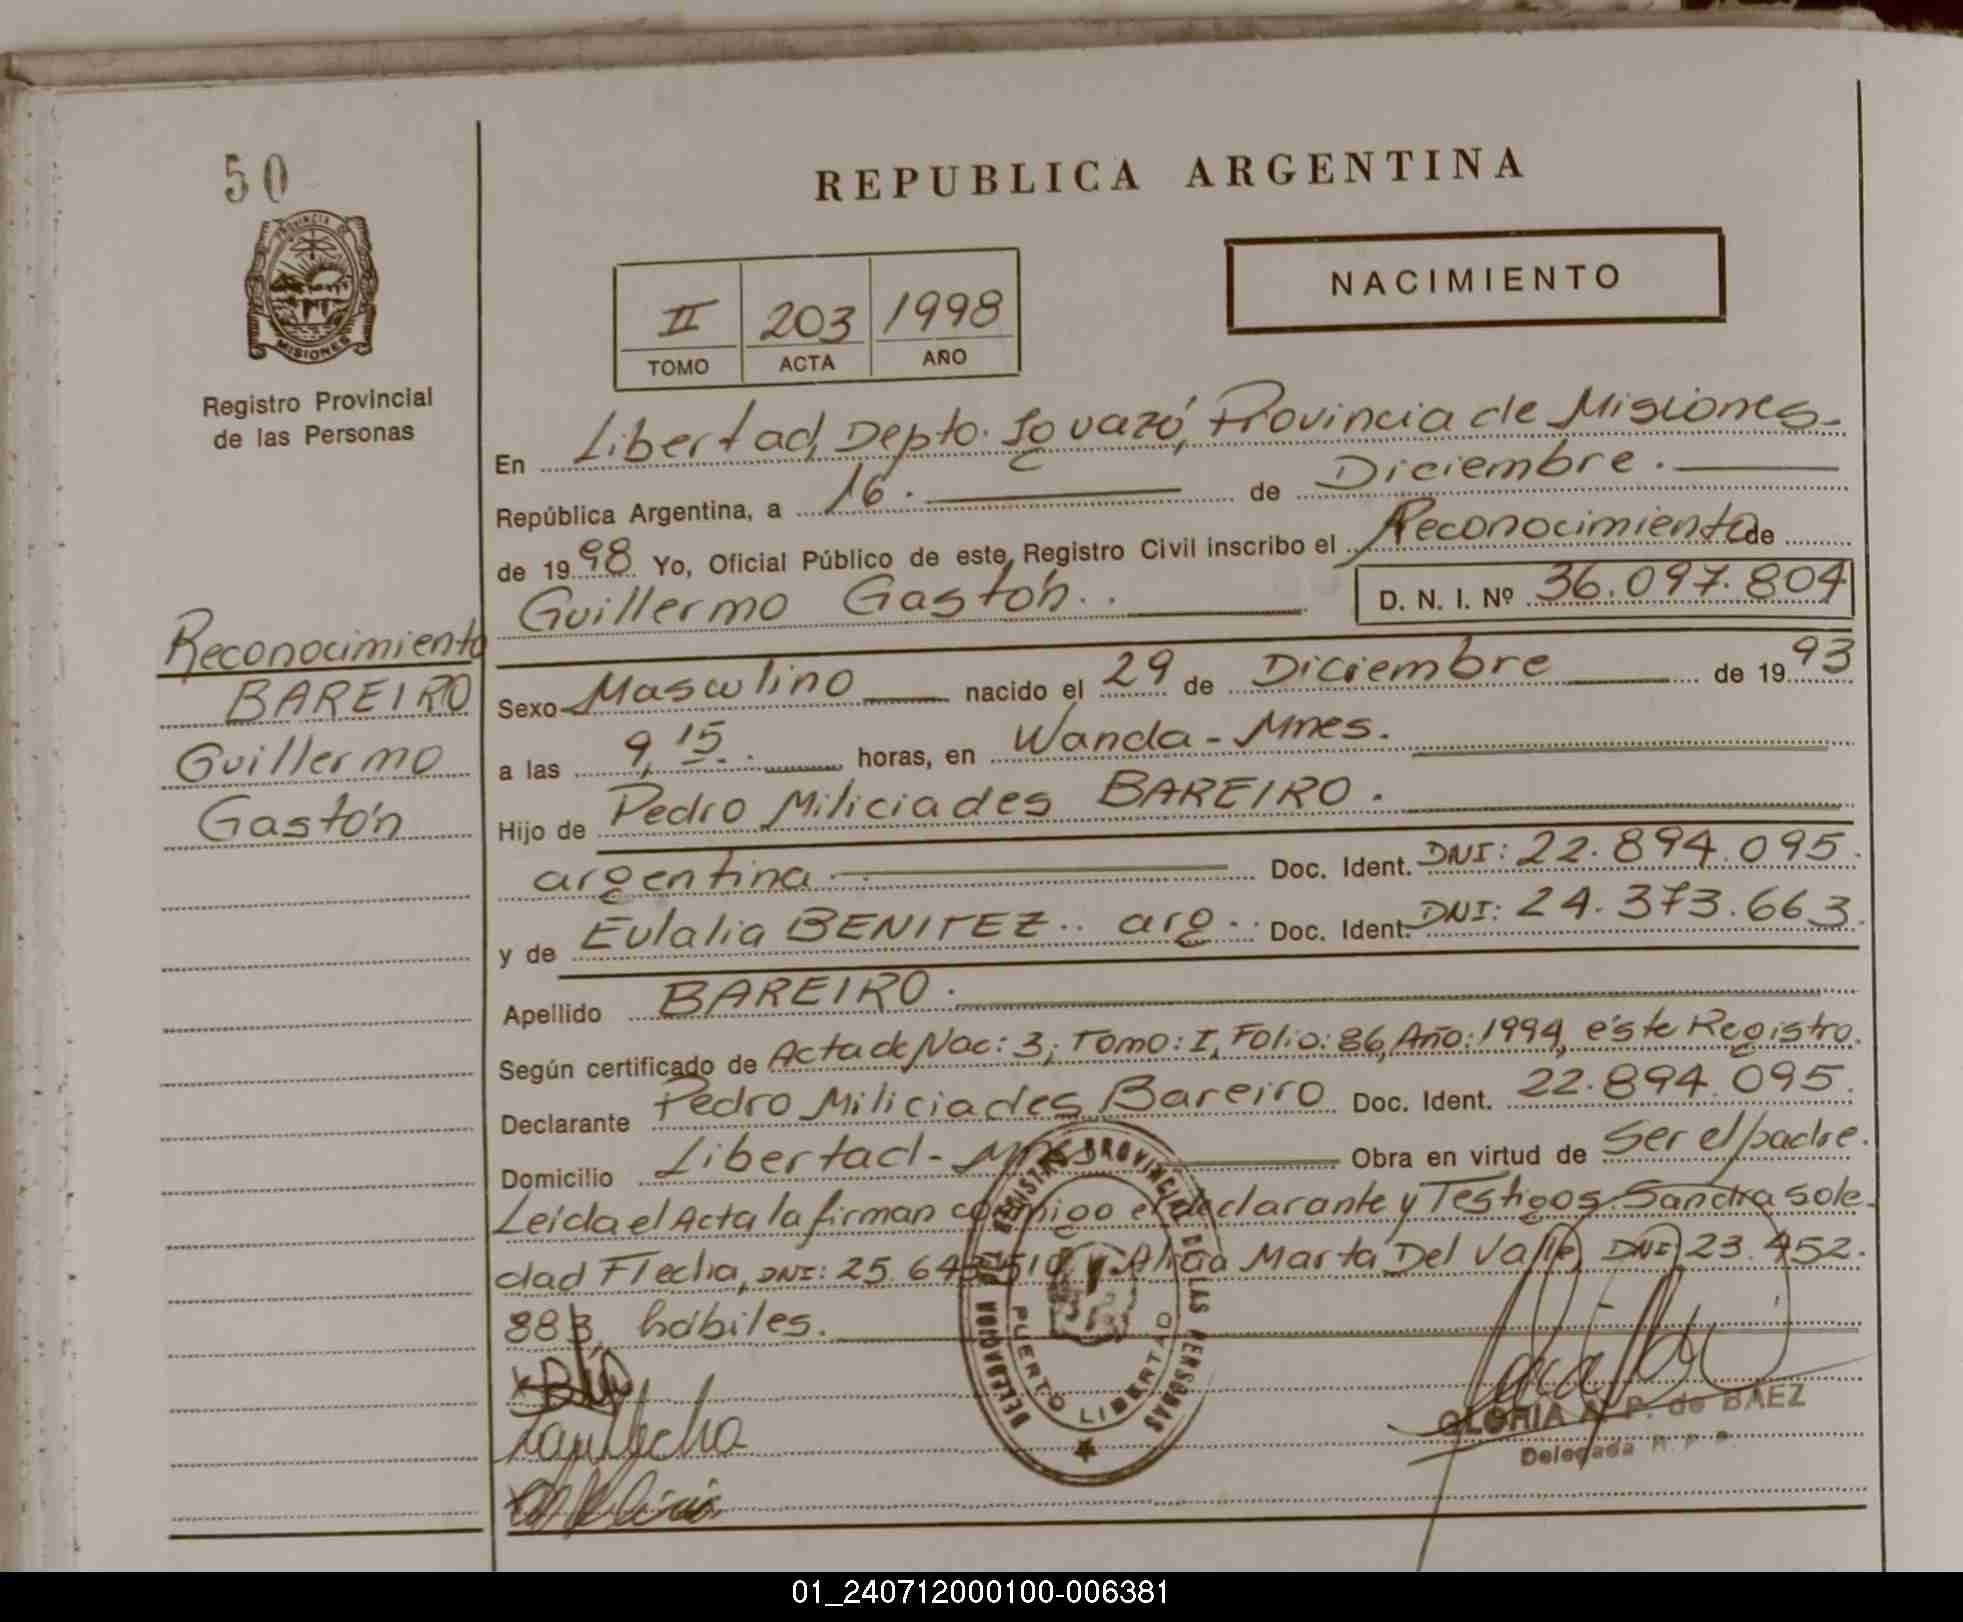 50
PROVINCIA DE
MISIONES
Registro Provincial
de las Personas
REPUBLICA ARGENTINA
NACIMIENTO
II 203 1998
TOMO ACTA AÑO
En Libertad, Depto. Iguazú, Provincia de Misiones.
República Argentina, a 16. de Diciembre.
de 1998 Yo, Oficial Público de este Registro Civil inscribo el Reconocimiento de
Guillermo Gastón.. D. N. I. Nº 36.097.804
Reconocimiento
BAREIRO
Guillermo
Gastón
Sexo Masculino nacido el 29 de Diciembre de 1993
a las 9,15. horas, en Wanda - Mnes.
Hijo de Pedro Miliciades BAREIRO.
argentina. Doc. Ident. DNI: 22.894.095.
y de Eulalia BENITEZ.. arg.. Doc. Ident. DNI: 24.373.663.
Apellido BAREIRO.
Según certificado de Acta de Nac: 3, Tomo: I, Folio: 86, Año: 1994, éste Registro.
Declarante Pedro Miliciades Bareiro Doc. Ident. 22.894.095.
Domicilio Libertad - Mnes Obra en virtud de Ser el padre.
Leída el Acta la firman conmigo el declarante y Testigos Sandra Sole
dad Flecha, DNI: 25.643.510 y Alicia Marta Del Valle DNI 23.452.
883, hábiles.
DELEGACION DEL REGISTRO PROVINCIAL DE LAS PERSONAS
PUERTO LIBERTAD
GLORIA A. P. de BAEZ
Delegada R. P. P.
01_240712000100-006381